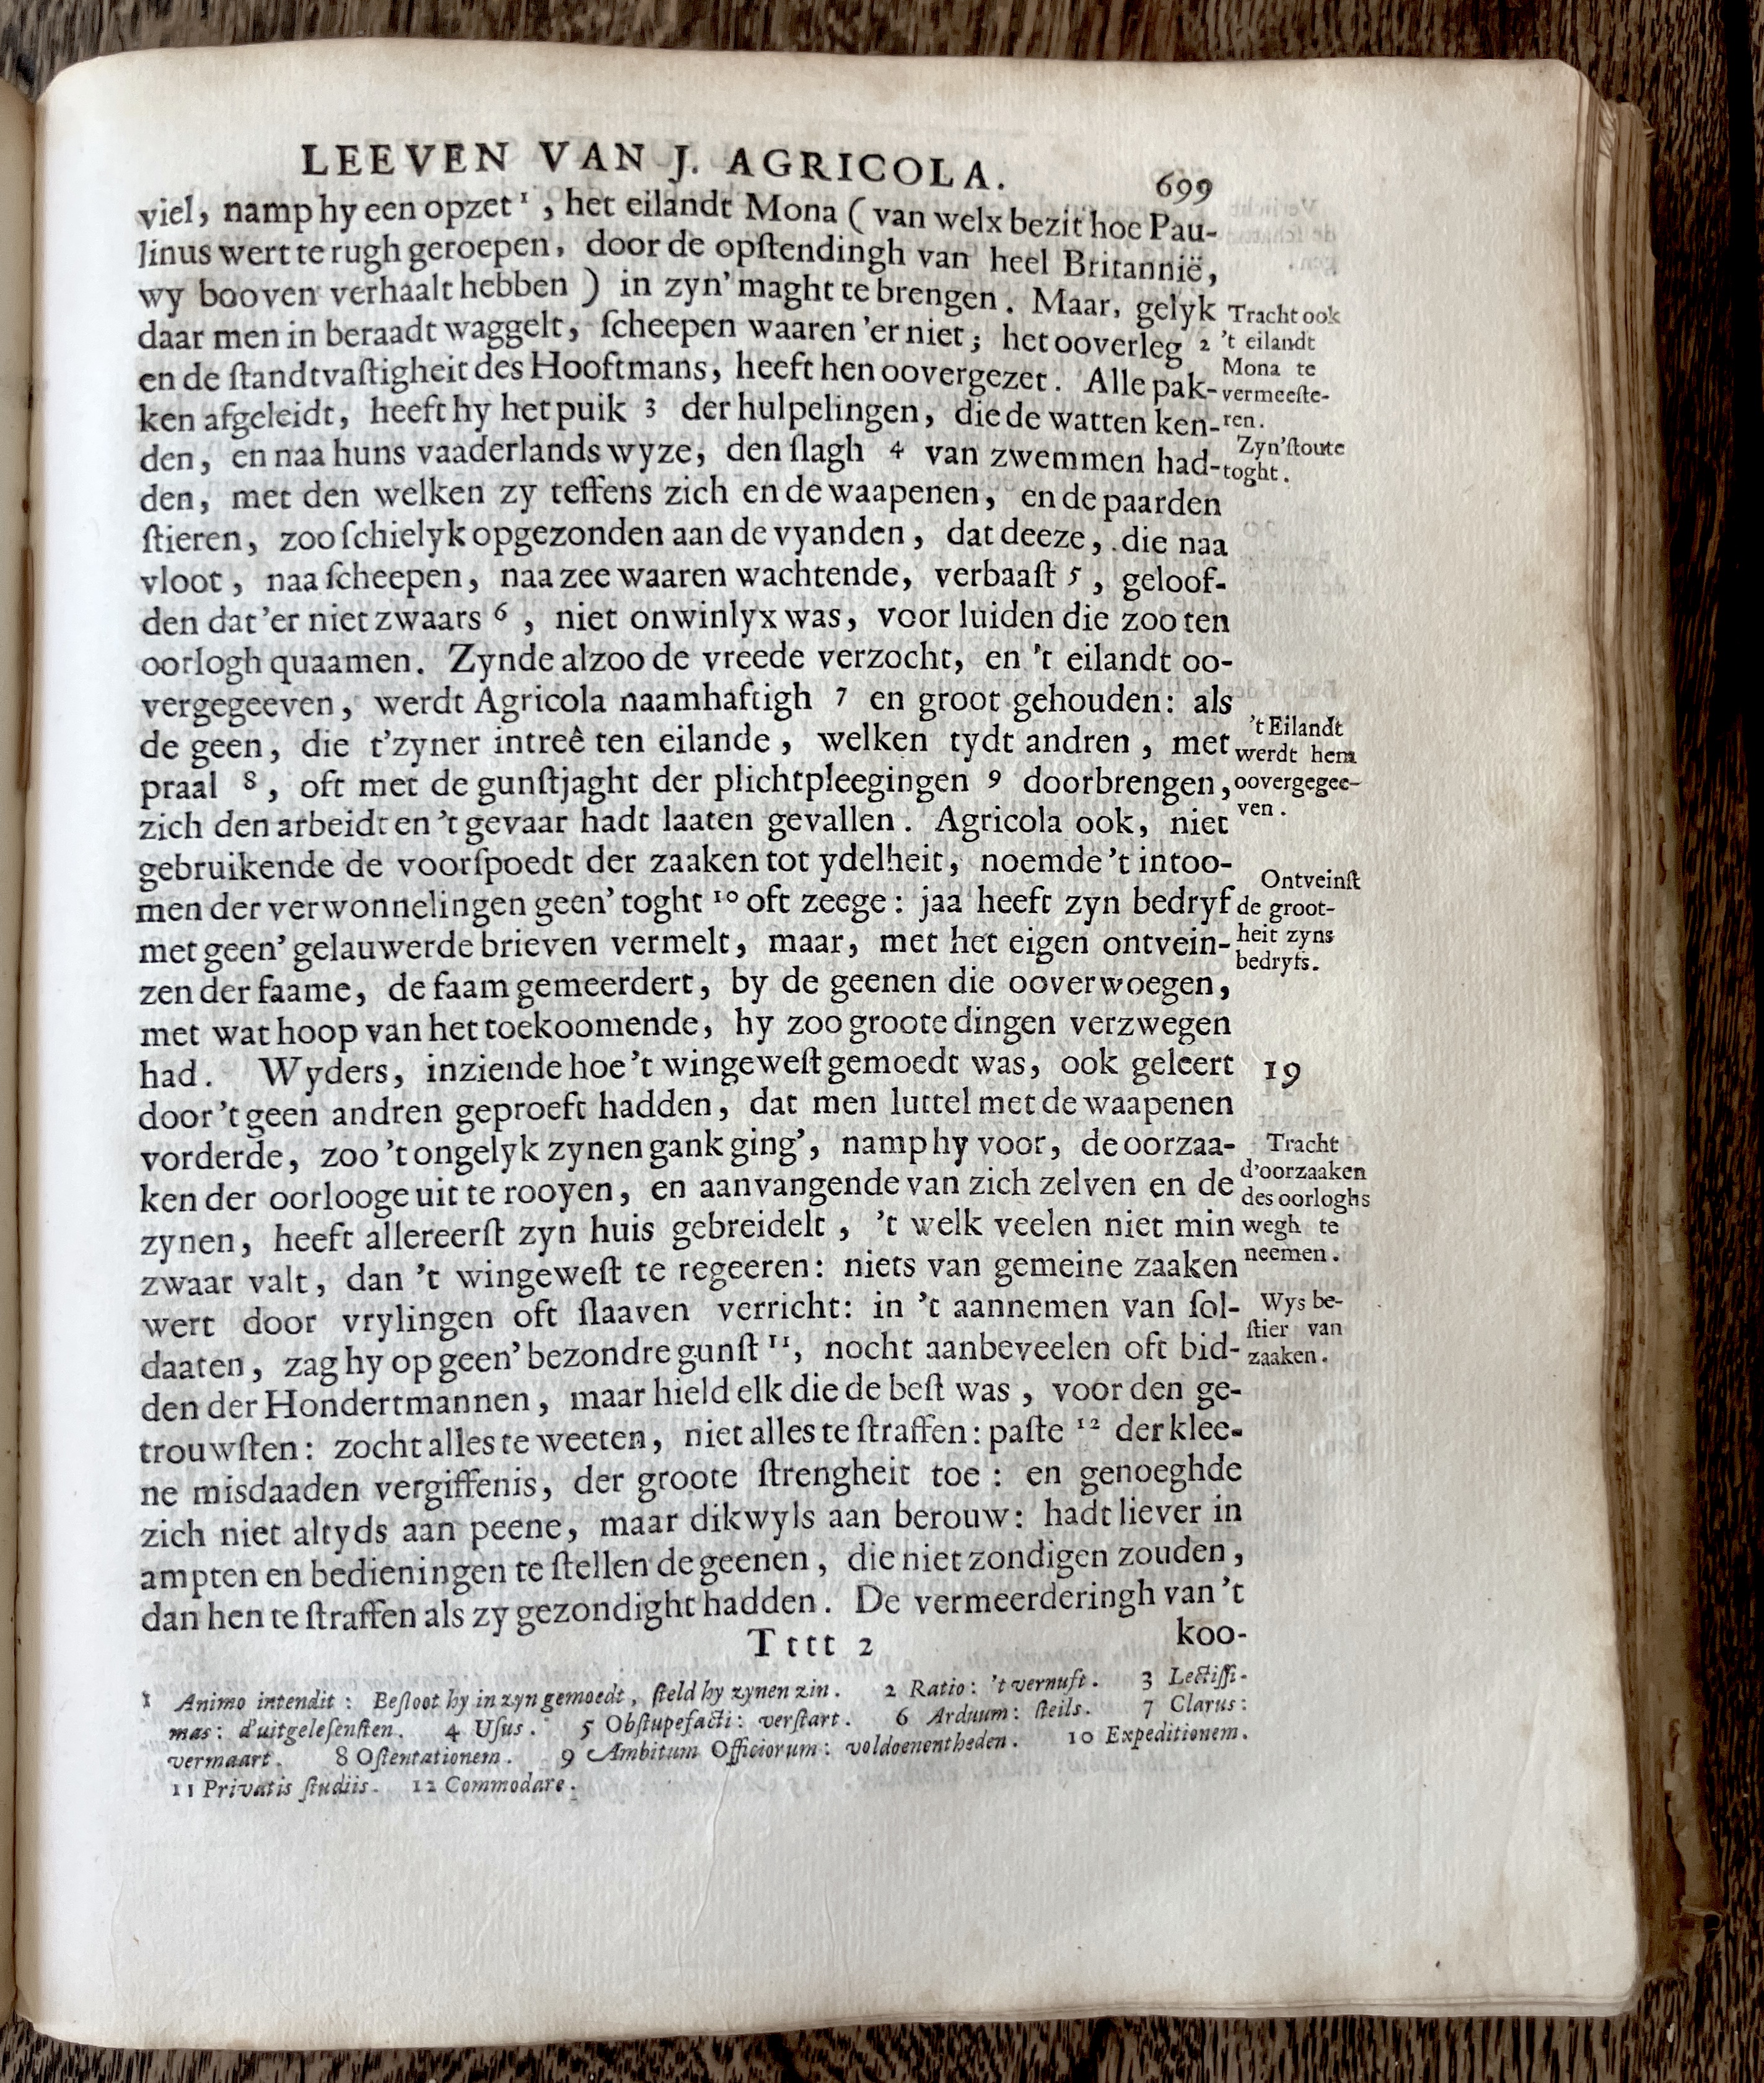 LEEVEN VAN J. AGRICOLA. 699
viel, namp hy een opzet ¹, het eilandt Mona (van welx bezit hoe Pau-
linus wert te rugh geroepen, door de opſtendingh van heel Britannië,
wy booven verhaalt hebben) in zyn' maght te brengen. Maar, gelyk
daar men in beraadt waggelt, ſcheepen waaren 'er niet; het ooverleg 2
en de ſtandtvaſtigheit des Hooftmans, heeft hen oovergezet. Alle pak-
ken afgeleidt, heeft hy het puik 3 der hulpelingen, die de watten ken-
den, en naa huns vaaderlands wyze, den ſlagh 4 van zwemmen had-
den, met den welken zy teffens zich en de waapenen, en de paarden
ſtieren, zoo ſchielyk opgezonden aan de vyanden, dat deeze, die naa
vloot, naa ſcheepen, naa zee waaren wachtende, verbaaſt 5, geloof-
den dat 'er niet zwaars 6, niet onwinlyx was, voor luiden die zoo ten
oorlogh quaamen. Zynde alzoo de vreede verzocht, en 't eilandt oo-
vergegeeven, werdt Agricola naamhaftigh 7 en groot gehouden: als
de geen, die t'zyner intreê ten eilande, welken tydt andren, met
praal 8, oft met de gunſtjaght der plichtpleegingen 9 doorbrengen,
zich den arbeidt en 't gevaar hadt laaten gevallen. Agricola ook, niet
gebruikende de voorſpoedt der zaaken tot ydelheit, noemde 't intoo-
men der verwonnelingen geen' toght ¹⁰ oft zeege: jaa heeft zyn bedryf
met geen' gelauwerde brieven vermelt, maar, met het eigen ontvein-
zen der faame, de faam gemeerdert, by de geenen die ooverwoegen,
met wat hoop van het toekoomende, hy zoo groote dingen verzwegen
had. Wyders, inziende hoe 't wingeweſt gemoedt was, ook geleert
door 't geen andren geproeft hadden, dat men luttel met de waapenen
vorderde, zoo 't ongelyk zynen gank ging', namp hy voor, de oorzaa-
ken der oorlooge uit te rooyen, en aanvangende van zich zelven en de
zynen, heeft allereerſt zyn huis gebreidelt, 't welk veelen niet min
zwaar valt, dan 't wingeweſt te regeeren: niets van gemeine zaaken
wert door vrylingen oft ſlaaven verricht: in 't aannemen van ſol-
daaten, zag hy op geen' bezondre gunſt ¹¹, nocht aanbeveelen oft bid-
den der Hondertmannen, maar hield elk die de beſt was, voor den ge-
trouwſten: zocht alles te weeten, niet alles te ſtraffen: paſte ¹² der klee-
ne misdaaden vergiffenis, der groote ſtrengheit toe: en genoeghde
zich niet altyds aan peene, maar dikwyls aan berouw: hadt liever in
ampten en bedieningen te ſtellen de geenen, die niet zondigen zouden,
dan hen te ſtraffen als zy gezondight hadden. De vermeerderingh van 't
Tttt 2 koo-
Tracht ook
't eilandt
Mona te
vermeeſte-
ren.
Zyn' ſtoute
toght.
't Eilandt
werdt hem
oovergegee-
ven.
Ontveinſt
de groot-
heit zyns
bedryfs.
19
Tracht
d'oorzaaken
des oorloghs
wegh te
neemen.
Wys be-
ſtier van
zaaken.
1 Animo intendit: Beſloot hy in zyn gemoedt, ſteld hy zynen zin. 2 Ratio: 't vernuft. 3 Lectiſſi-
mas: d'uitgeleſenſten. 4 Uſus. 5 Obſtupefacti: verſtart. 6 Arduum: ſteils. 7 Clarus:
vermaart. 8 Oſtentationem. 9 Ambitum Officiorum: voldoenentheden. 10 Expeditionem.
11 Privatis ſtudiis. 12 Commodare.